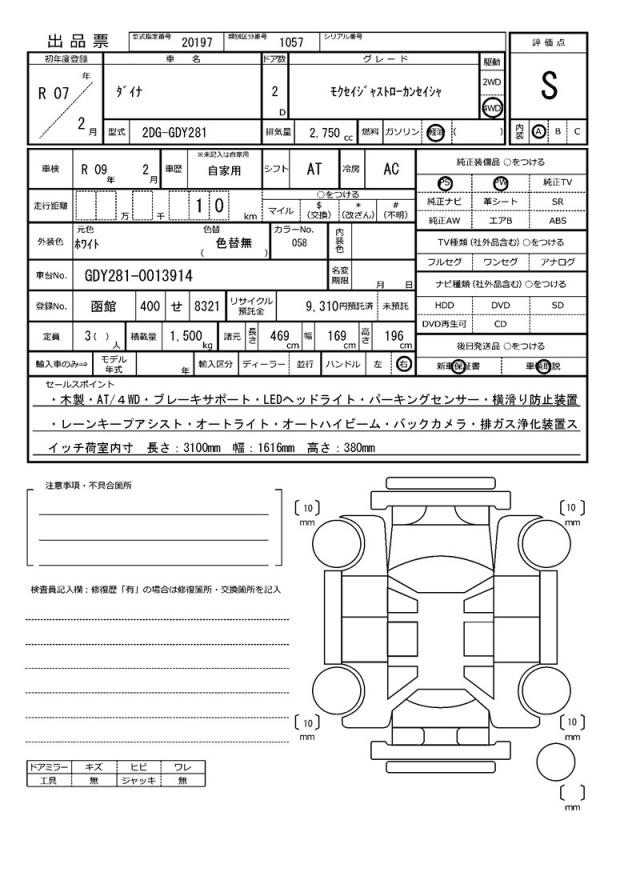 出品票 型式指定番号 20197 類別区分番号 1057 シリアル番号
初年度登録 車名 ドア数 グレード 駆動 評価点
R 07 年 2 月
ダイナ 2 D モクセイジャストローカンセイシャ 2WD 4WD S
型式 2DG-GDY281 排気量 2,750 cc 燃料 ガソリン 軽油 ( ) 内装 A B C
車検 R 09 年 2 月 車歴 ※未記入は自家用 自家用 シフト AT 冷房 AC
走行距離 万 千 1 0 km ○をつける マイル $ (交換) * (改ざん) # (不明)
外装色 元色 ホワイト 色替 色替無 ( ) カラーNo. 058 内装色
車台No. GDY281-0013914 名変期限 月 日
登録No. 函館 400 せ 8321 リサイクル預託金 9,310円預託済 未預託
定員 3( ) 人 積載量 1,500 kg 諸元 長さ 469 cm 幅 169 cm 高さ 196 cm
輸入車のみ⇒ モデル年式 年 輸入区分 ディーラー 並行 ハンドル 左 右
純正装備品 ○をつける
PS PW 純正TV
純正ナビ 革シート SR
純正AW エアB ABS
TV種類 (社外品含む) ○をつける
フルセグ ワンセグ アナログ
ナビ種類 (社外品含む) ○をつける
HDD DVD SD
DVD再生可 CD
後日発送品 ○をつける
新車保証書 車輌取説
セールスポイント
・木製・AT/4WD・ブレーキサポート・LEDヘッドライト・パーキングセンサー・横滑り防止装置
・レーンキープアシスト・オートライト・オートハイビーム・バックカメラ・排ガス浄化装置ス
イッチ荷室内寸 長さ:3100mm 幅:1616mm 高さ:380mm
注意事項・不具合箇所
〔 10 〕 mm
〔 10 〕 mm
検査員記入欄:修復歴「有」の場合は修復箇所・交換箇所を記入
〔 10 〕 mm
〔 10 〕 mm
ドアミラー キズ ヒビ ワレ
工具 無 ジャッキ 無
〔 〕 mm